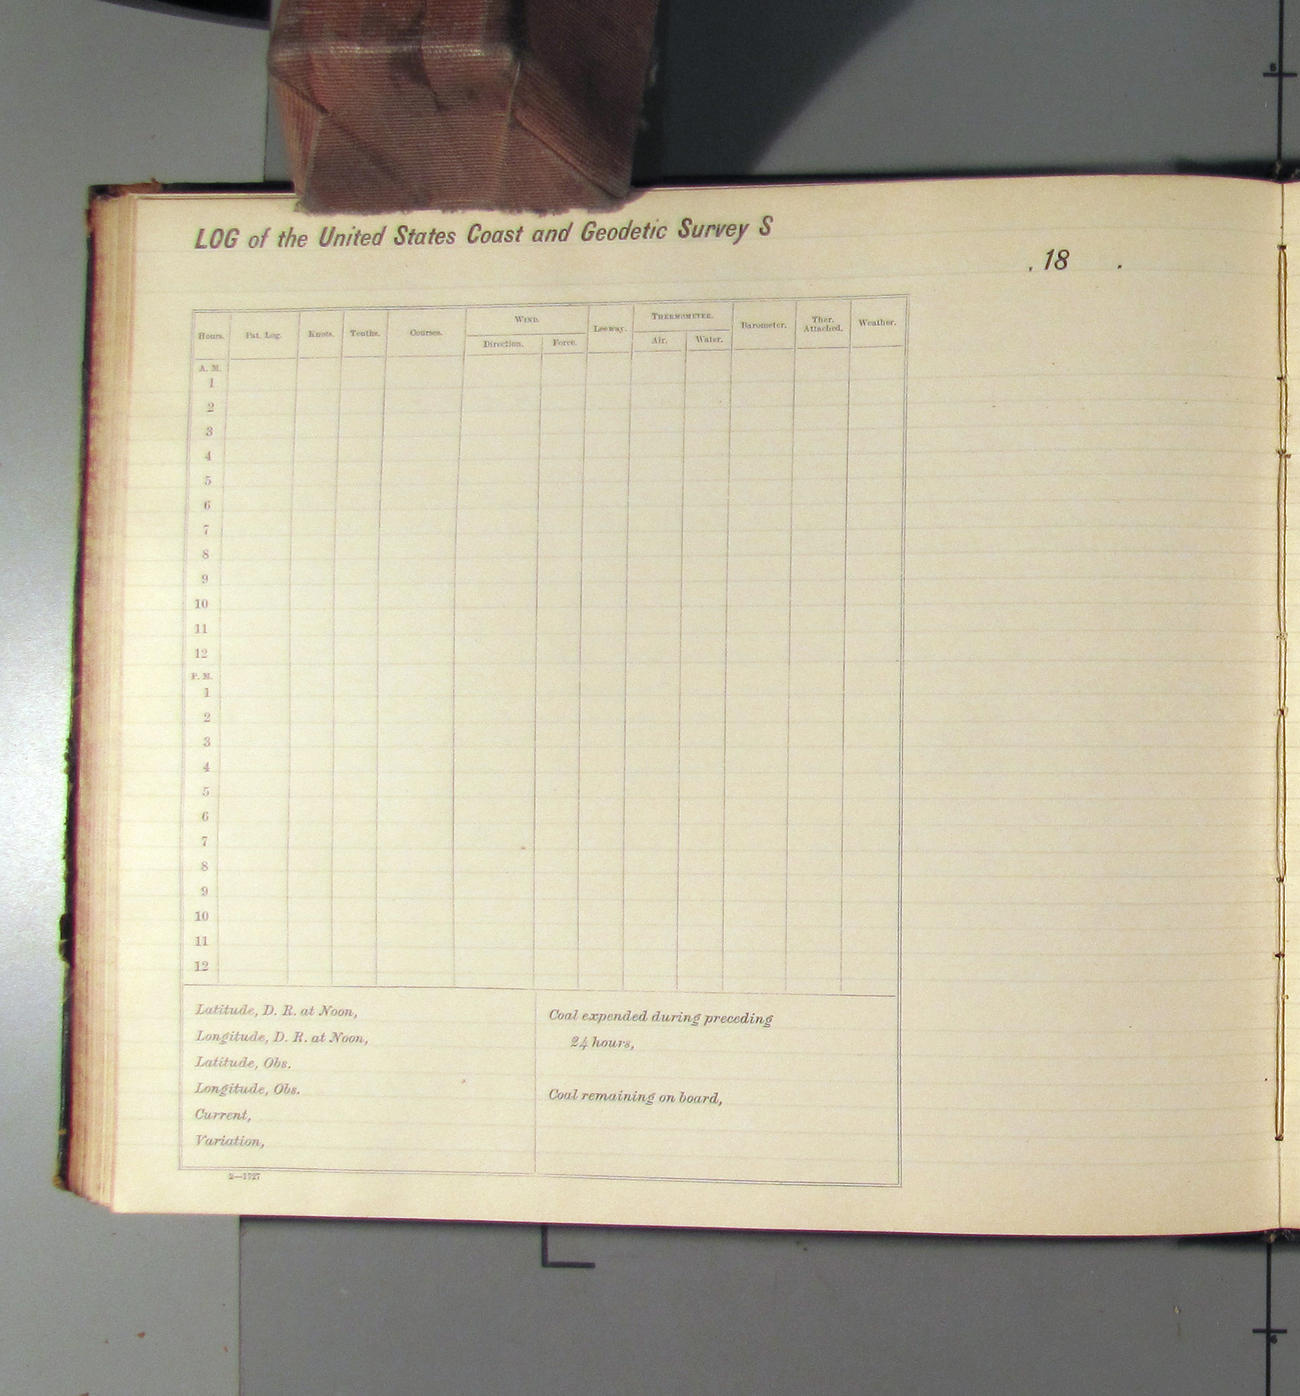 LOG of the United States Coast and Geodetic Survey S
, 18 .
Hours. Pat. Log. Knots. Tenths. Courses. WIND. Leeway. THERMOMETER. Barometer. Ther. Attached. Weather.
Direction. Force. Air. Water.
A. M.
1
2
3
4
5
6
7
8
9
10
11
12
P. M.
1
2
3
4
5
6
7
8
9
10
11
12
Latitude, D. R. at Noon,
Longitude, D. R. at Noon,
Latitude, Obs.
Longitude, Obs.
Current,
Variation,
Coal expended during preceding
24 hours,
Coal remaining on board,
2—1727